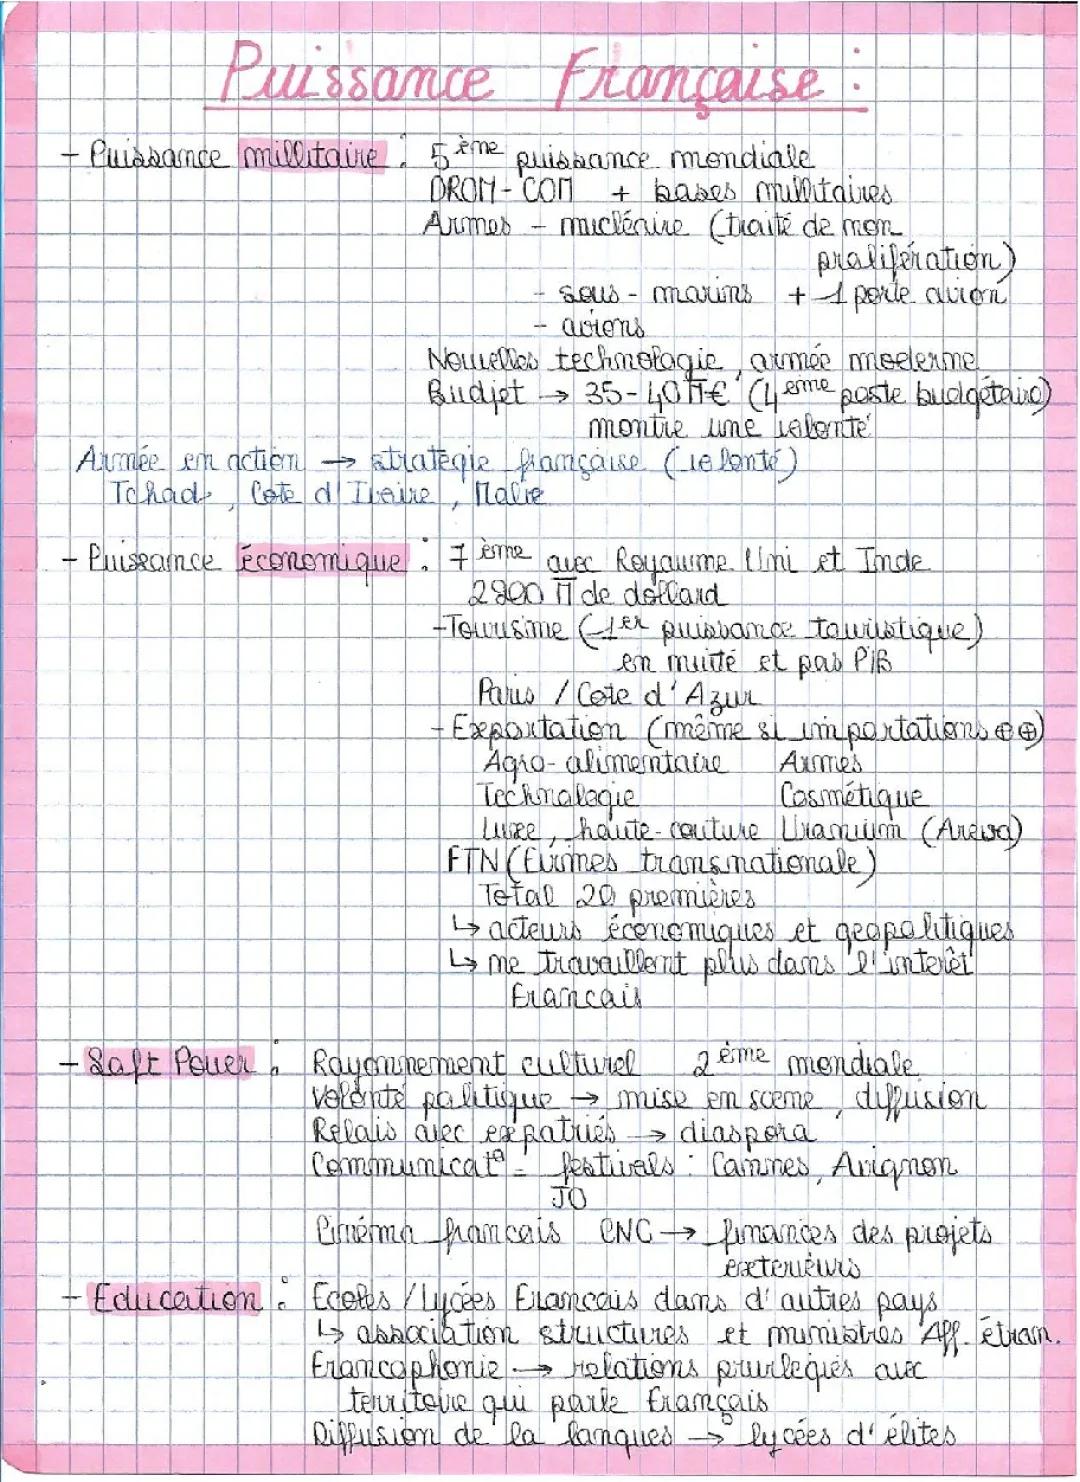 Puissance Française :
- Puissance millitaire : 5ème puissance mondiale
DROM-COM + bases millitaires
Armes - nucléaire (traité de non
prolifération)
- sous-marins + 1 porte avion
- avions
Nouvelles technologie, armée moderne
Budjet → 35-40 M€ (4eme poste budgétaire)
montre une volonté
Armée en action → stratégie française (volonté)
Tchad, Cote d'Ivoire, Malie
- Puissance économique : 7ème avec Royaume Uni et Inde
2900 M de dollard
- Tourisme (1er puissance touristique)
en nuité et pas PIB
Paris / Cote d'Azur
- Exportation (même si importations ⊕⊕)
Agro-alimentaire Armes
Technologie Cosmétique
Luxe, haute-couture Uranium (Areva)
FTN (Firmes transnationale)
Total 20 premières
↳ acteurs économiques et geopolitiques
↳ ne travaillent plus dans l'interêt
Francais
- Soft Power : Rayonnement culturel 2ème mondiale
volonté politique → mise en scene, diffusion
Relais avec expatriés → diaspora
Communicat° - festivals : Cannes, Avignon
JO
Cinéma francais CNC → finances des projets
exterieurs
- Education : Ecoles / Lycées Francais dans d'autres pays
↳ association structures et ministres Aff. étran.
Francophonie → relations privilegiés avec
territoire qui parle français
Diffusion de la langues → lycées d'élites